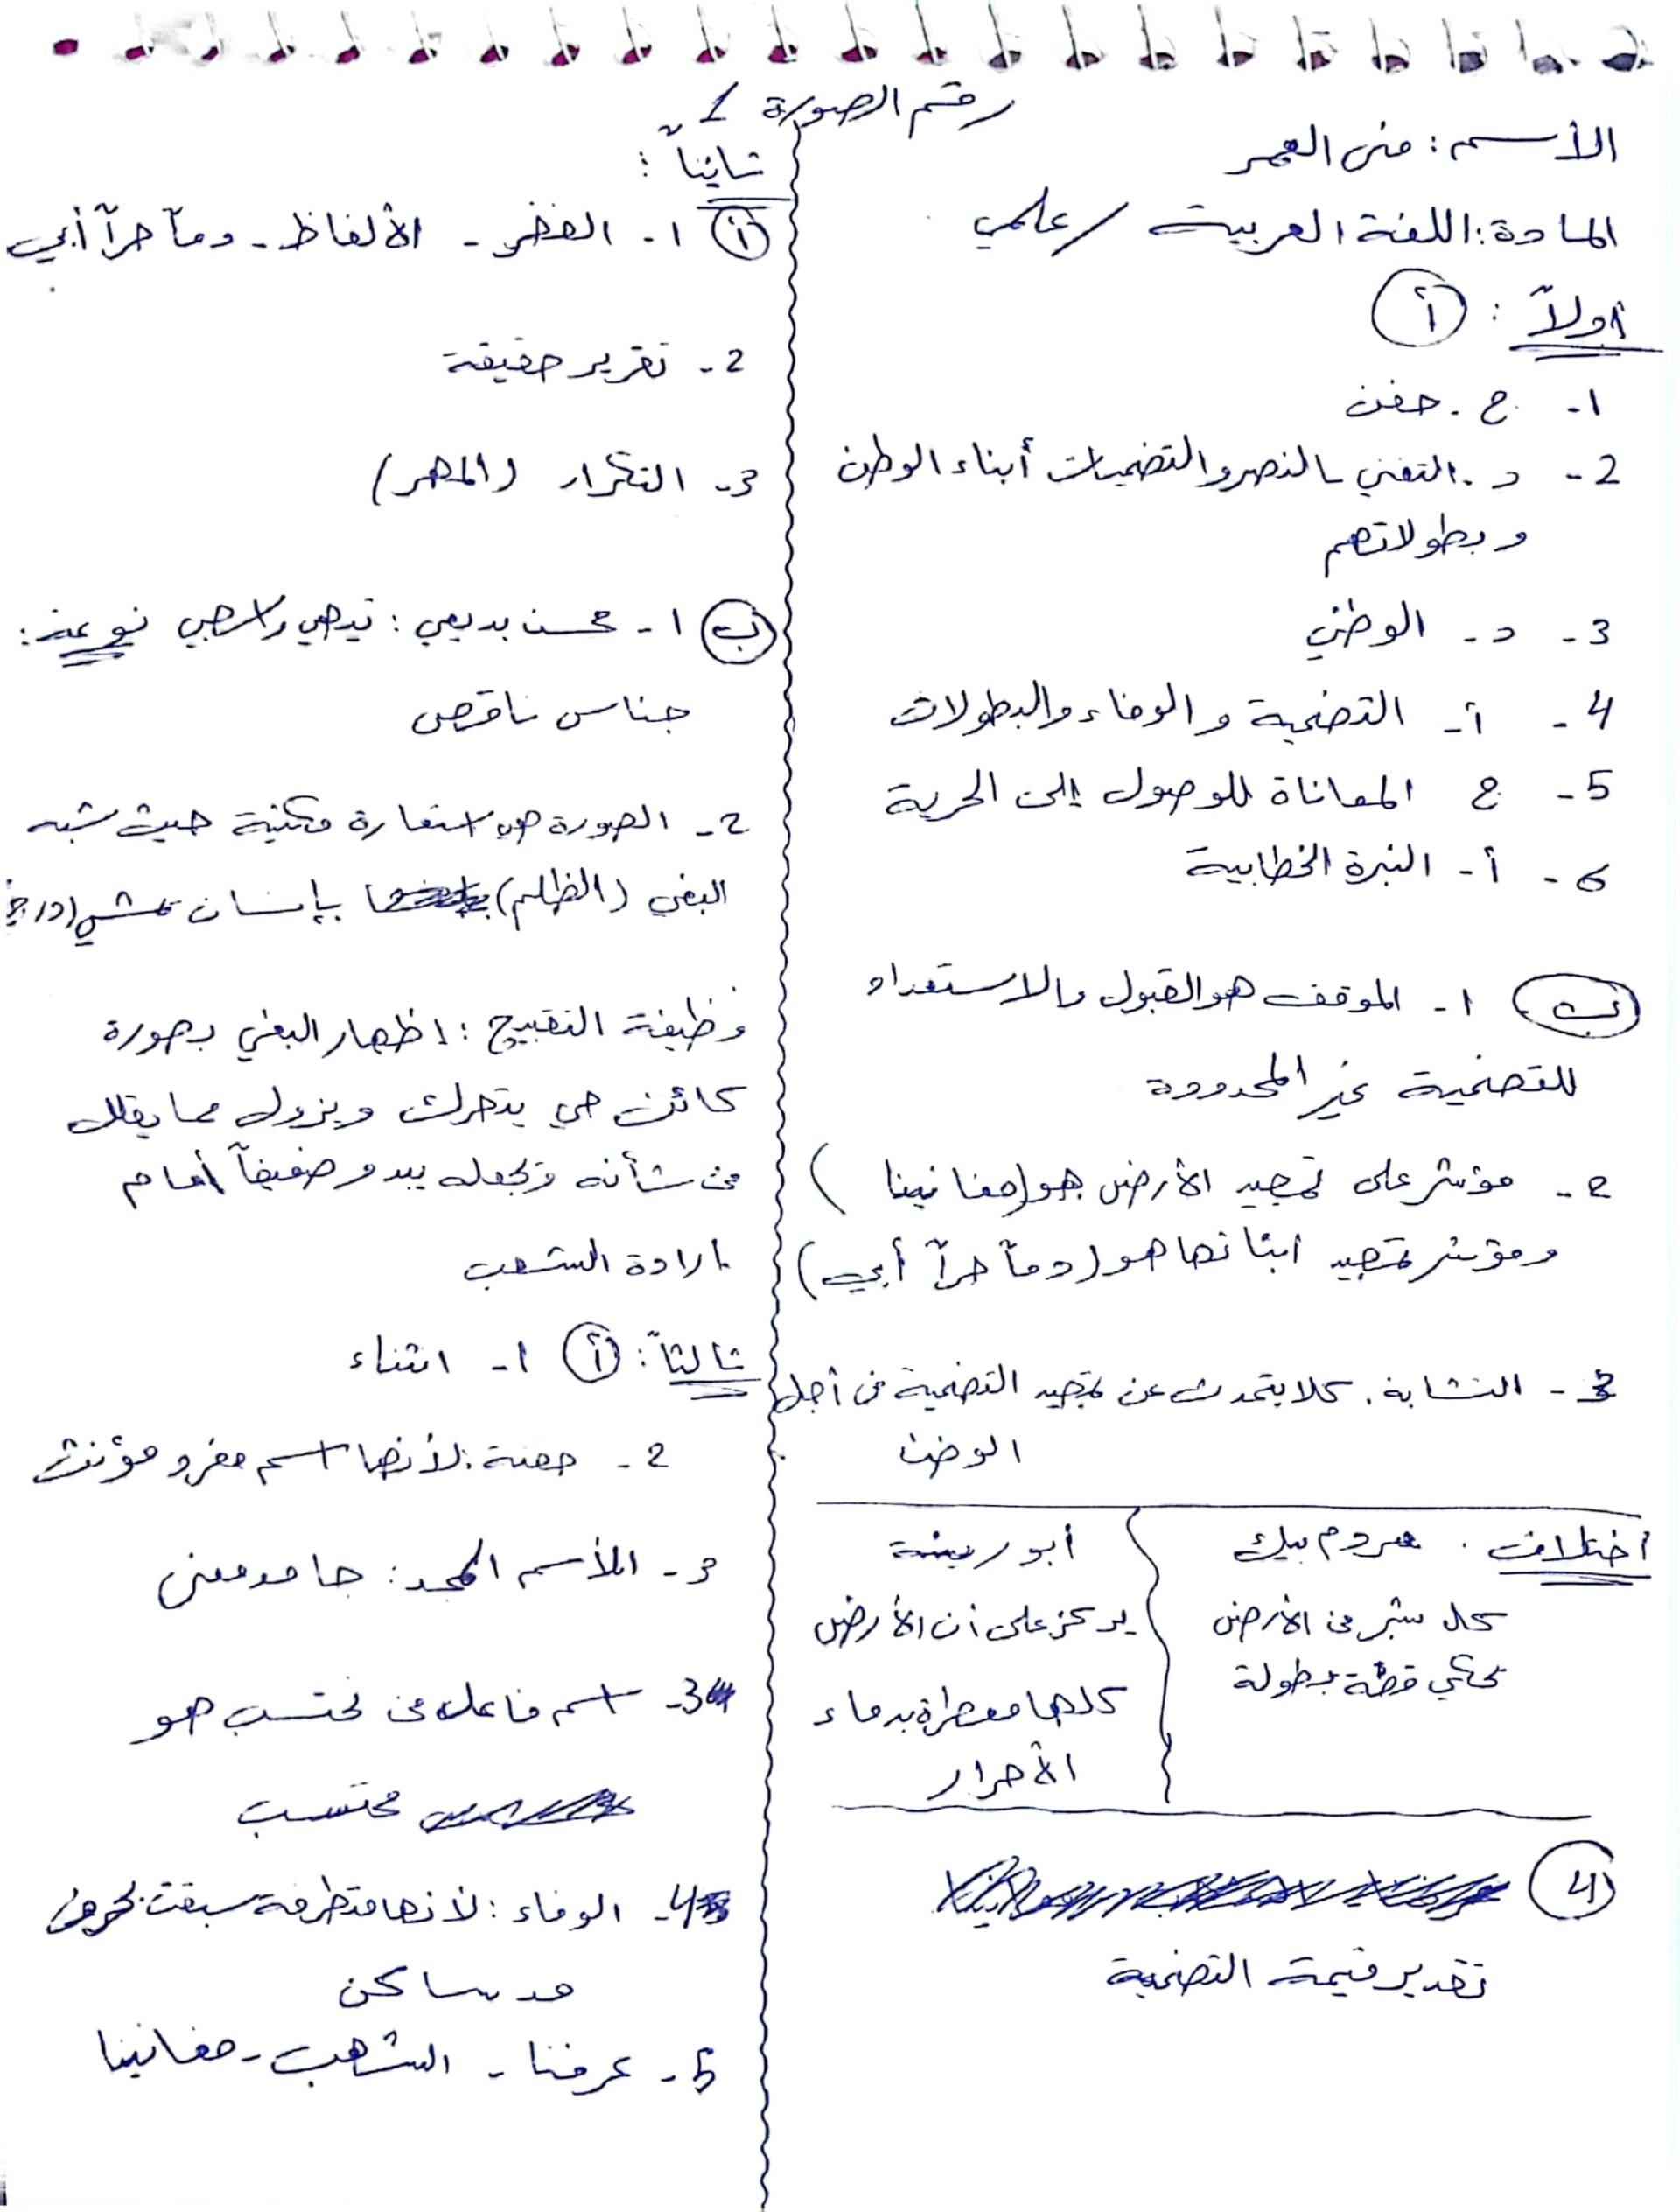 رقم الصورة 1
الأسم : منى العمر
المادة : اللغة العربية / علمي
أولاً : أ
1- ج . حفن
2- د . التغني بالنصر والتضحيات أبناء الوطن
وبطولاتهم
3- د - الوطني
4- أ - التضحية والوفاء والبطولات
5- ج المعاناة للوصول إلى الحرية
6- أ - النبرة الخطابية
ب 1- الموقف هو القبول والاستعداد
للتضحية غير المحدودة
2- مؤشر على تمجيد الأرض هو (مغانينا )
ومؤشر تمجيد ابنائها هو (دماً حراً أبي)
3- التشابة . كلا يتحدث عن تمجيد التضحية من أجل
الوطن
أختلاف . مردم بيك
كل شبر من الأرض
تحكي قصة بطولة
أبو ريشة
يركز على أن الأرض
كلها معطرة بدماء
الأحرار
4
تقدير قيمة التضحية
ثانياً :
أ 1- الفخر - الألفاظ - دماً حراً أبي
2- تقرير حقيقة
3- التكرار (المهر)
ب 1- محسن بديعي : نوعه :
جناس ناقص
2- الصورة هي استعارة مكنية حيث شبه
البغي (الظلم) بإنسان
وظيفة التقبيح : اظهار البغي بصورة
كائن حي يتحرك ويزول مما يقلل
من شأنه وتجعله يبدو ضعيفاً أمام
إرادة الشعب
ثالثاً : أ 1- انتناء
2- لأنها اسم مفرد مؤنث
3- الأسم المجد : جامد معنى
3- اسم فاعل من تحتسب هو
محتسب
4- الوفاء : لأنها متطرفة سبقت بحرف
مد ساكن
5- عرفنا - الشهب - مغانينا